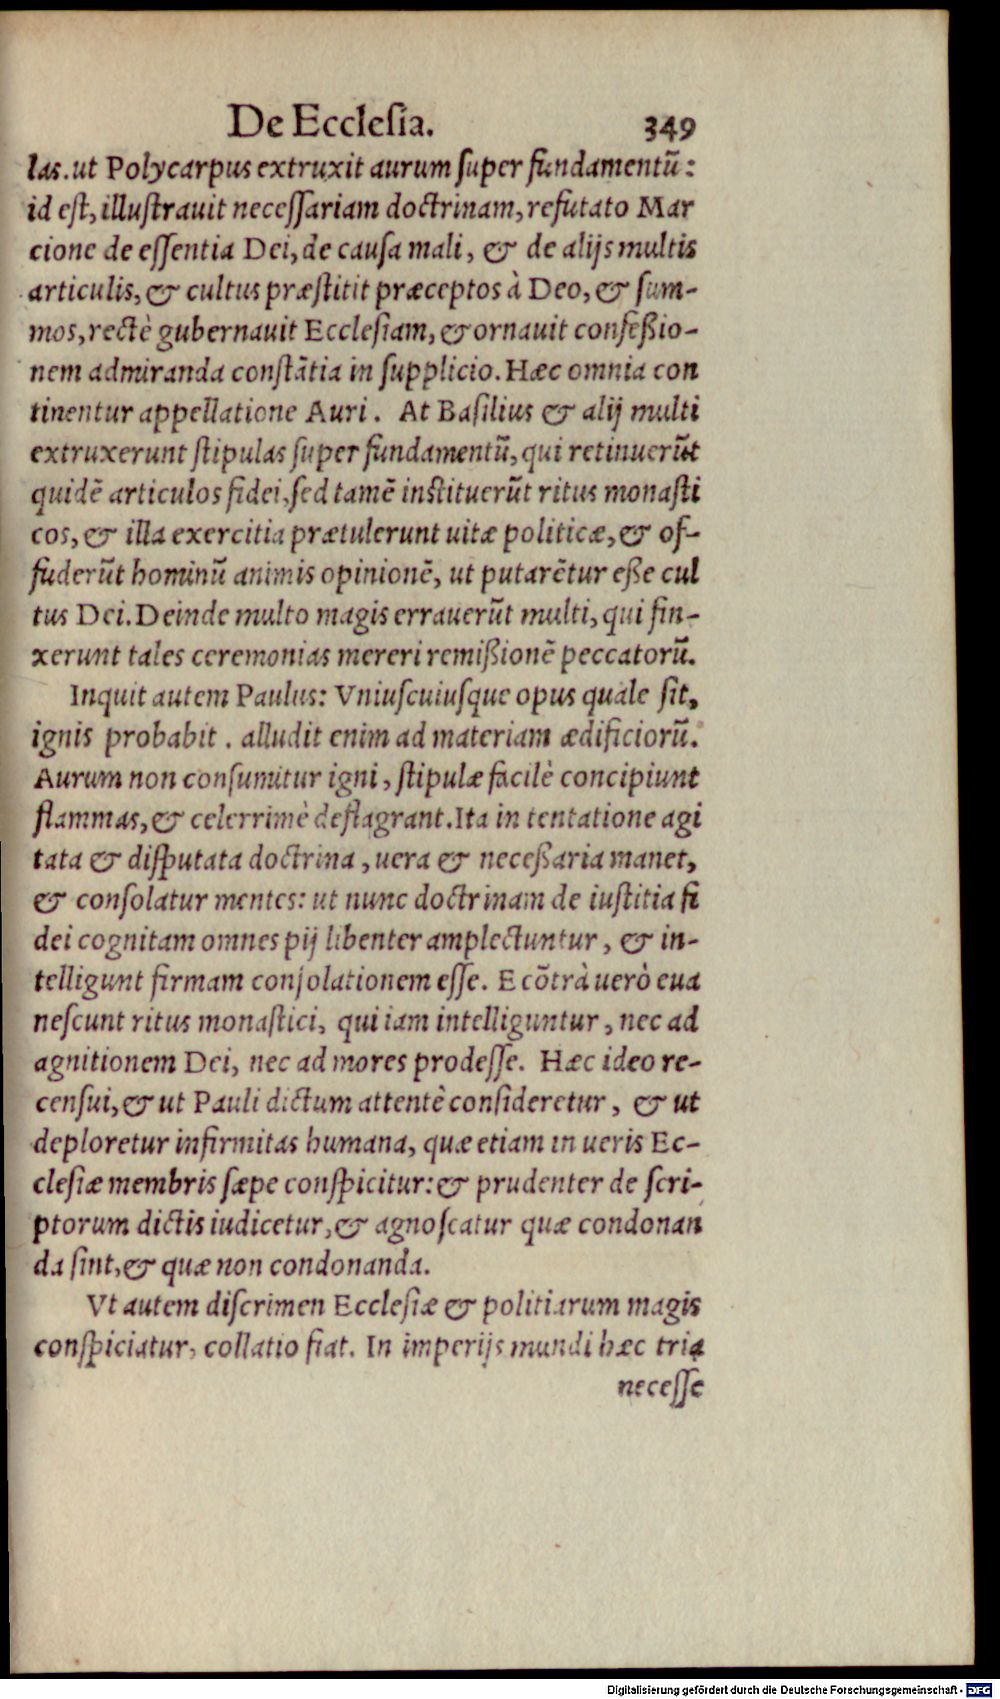 De Eccleſia. 349
las. ut Polycarpus extruxit aurum ſuper fundamentũ:
id eſt, illuſtrauit neceſſariam doctrinam, refutato Mar
cione de eſſentia Dei, de cauſa mali, & de alijs multis
articulis, & cultus præſtitit præceptos à Deo, & ſum-
mos, rectè gubernauit Eccleſiam, & ornauit confeßio-
nem admiranda conſtãtia in ſupplicio. Hæc omnia con
tinentur appellatione Auri. At Baſilius & alij multi
extruxerunt ſtipulas ſuper fundamentũ, qui retinuerũt
quidẽ articulos fidei, ſed tamẽ inſtituerũt ritus monaſti
cos, & illa exercitia prætulerunt uitæ politicæ, & of-
fuderũt hominũ animis opinionẽ, ut putarẽtur eße cul
tus Dei. Deinde multo magis errauerũt multi, qui fin-
xerunt tales ceremonias mereri remißionẽ peccatorũ.
Inquit autem Paulus: Vniuſcuiuſque opus quale ſit,
ignis probabit. alludit enim ad materiam ædificiorũ.
Aurum non conſumitur igni, ſtipulæ facilè concipiunt
flammas, & celerrimè deflagrant. Ita in tentatione agi
tata & diſputata doctrina, uera & neceßaria manet,
& conſolatur mentes: ut nunc doctrinam de iuſtitia fi
dei cognitam omnes pij libenter amplectuntur, & in-
telligunt firmam conſolationem eſſe. E cõtrà uerò eua
neſcunt ritus monaſtici, qui iam intelliguntur, nec ad
agnitionem Dei, nec ad mores prodeſſe. Hæc ideo re-
cenſui, & ut Pauli dictum attentè conſideretur, & ut
deploretur infirmitas humana, quæ etiam in ueris Ec-
cleſiæ membris ſæpe conſpicitur: & prudenter de ſcri-
ptorum dictis iudicetur, & agnoſcatur quæ condonan
da ſint, & quæ non condonanda.
Vt autem diſcrimen Eccleſiæ & politiarum magis
conſpiciatur, collatio fiat. In imperijs mundi hæc tria
neceſſe
Digitalisierung gefördert durch die Deutsche Forschungsgemeinschaft - DFG